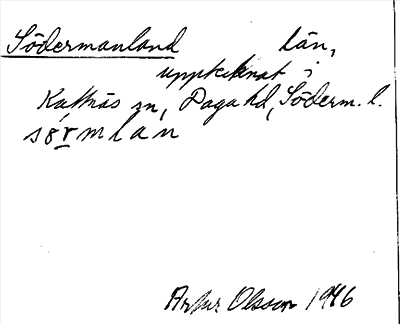 Södermanland län,
upptecknat i
Kattnäs sn, Daga hd, Söderm. l.
sörmlan
Artur Olsson 1946